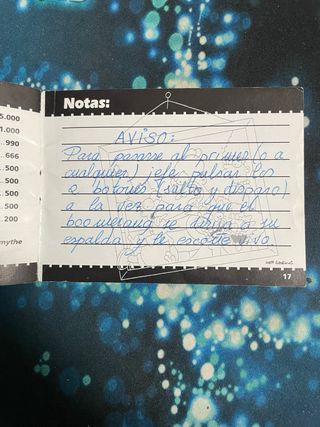 5.000
1.000
..990
..666
. 500
. 500
. 500
.200
mythe
Notas:
AVISO:
Para pasarse al primer (o a
cualquier) jefe pulsar los
2 botones (salto y disparo)
a la vez para que el
boomerang se dirija a su
espalda y le
17